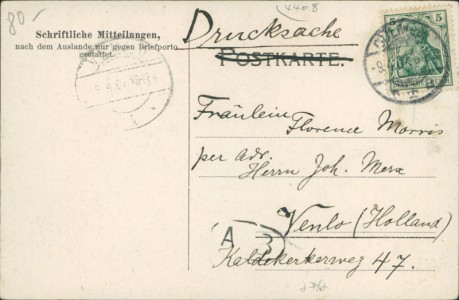 80-
4408
Drucksache
Schriftliche Mitteilungen,
nach dem Auslande nur gegen Briefporto
gestattet.
POSTKARTE.
5 5
Fräulein
Florence Morris
per Adr.
Herrn Joh. Merx
Venlo (Holland)
A 3
Kaldekerkerweg 47.